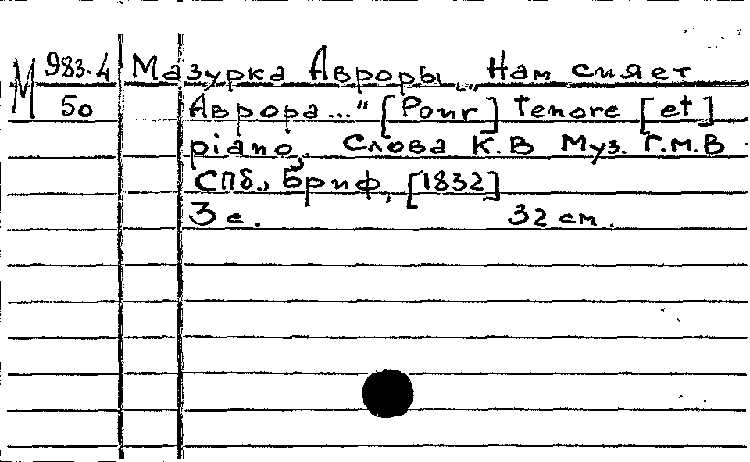 М 983.4 Мазурка Авроры „Нам сияет
50 Аврора..." [Pour] Tenore [et]
piano. Слова К.В Муз. Г.М.В
СПб., Бриф, [1832]
3 с. 32 см.